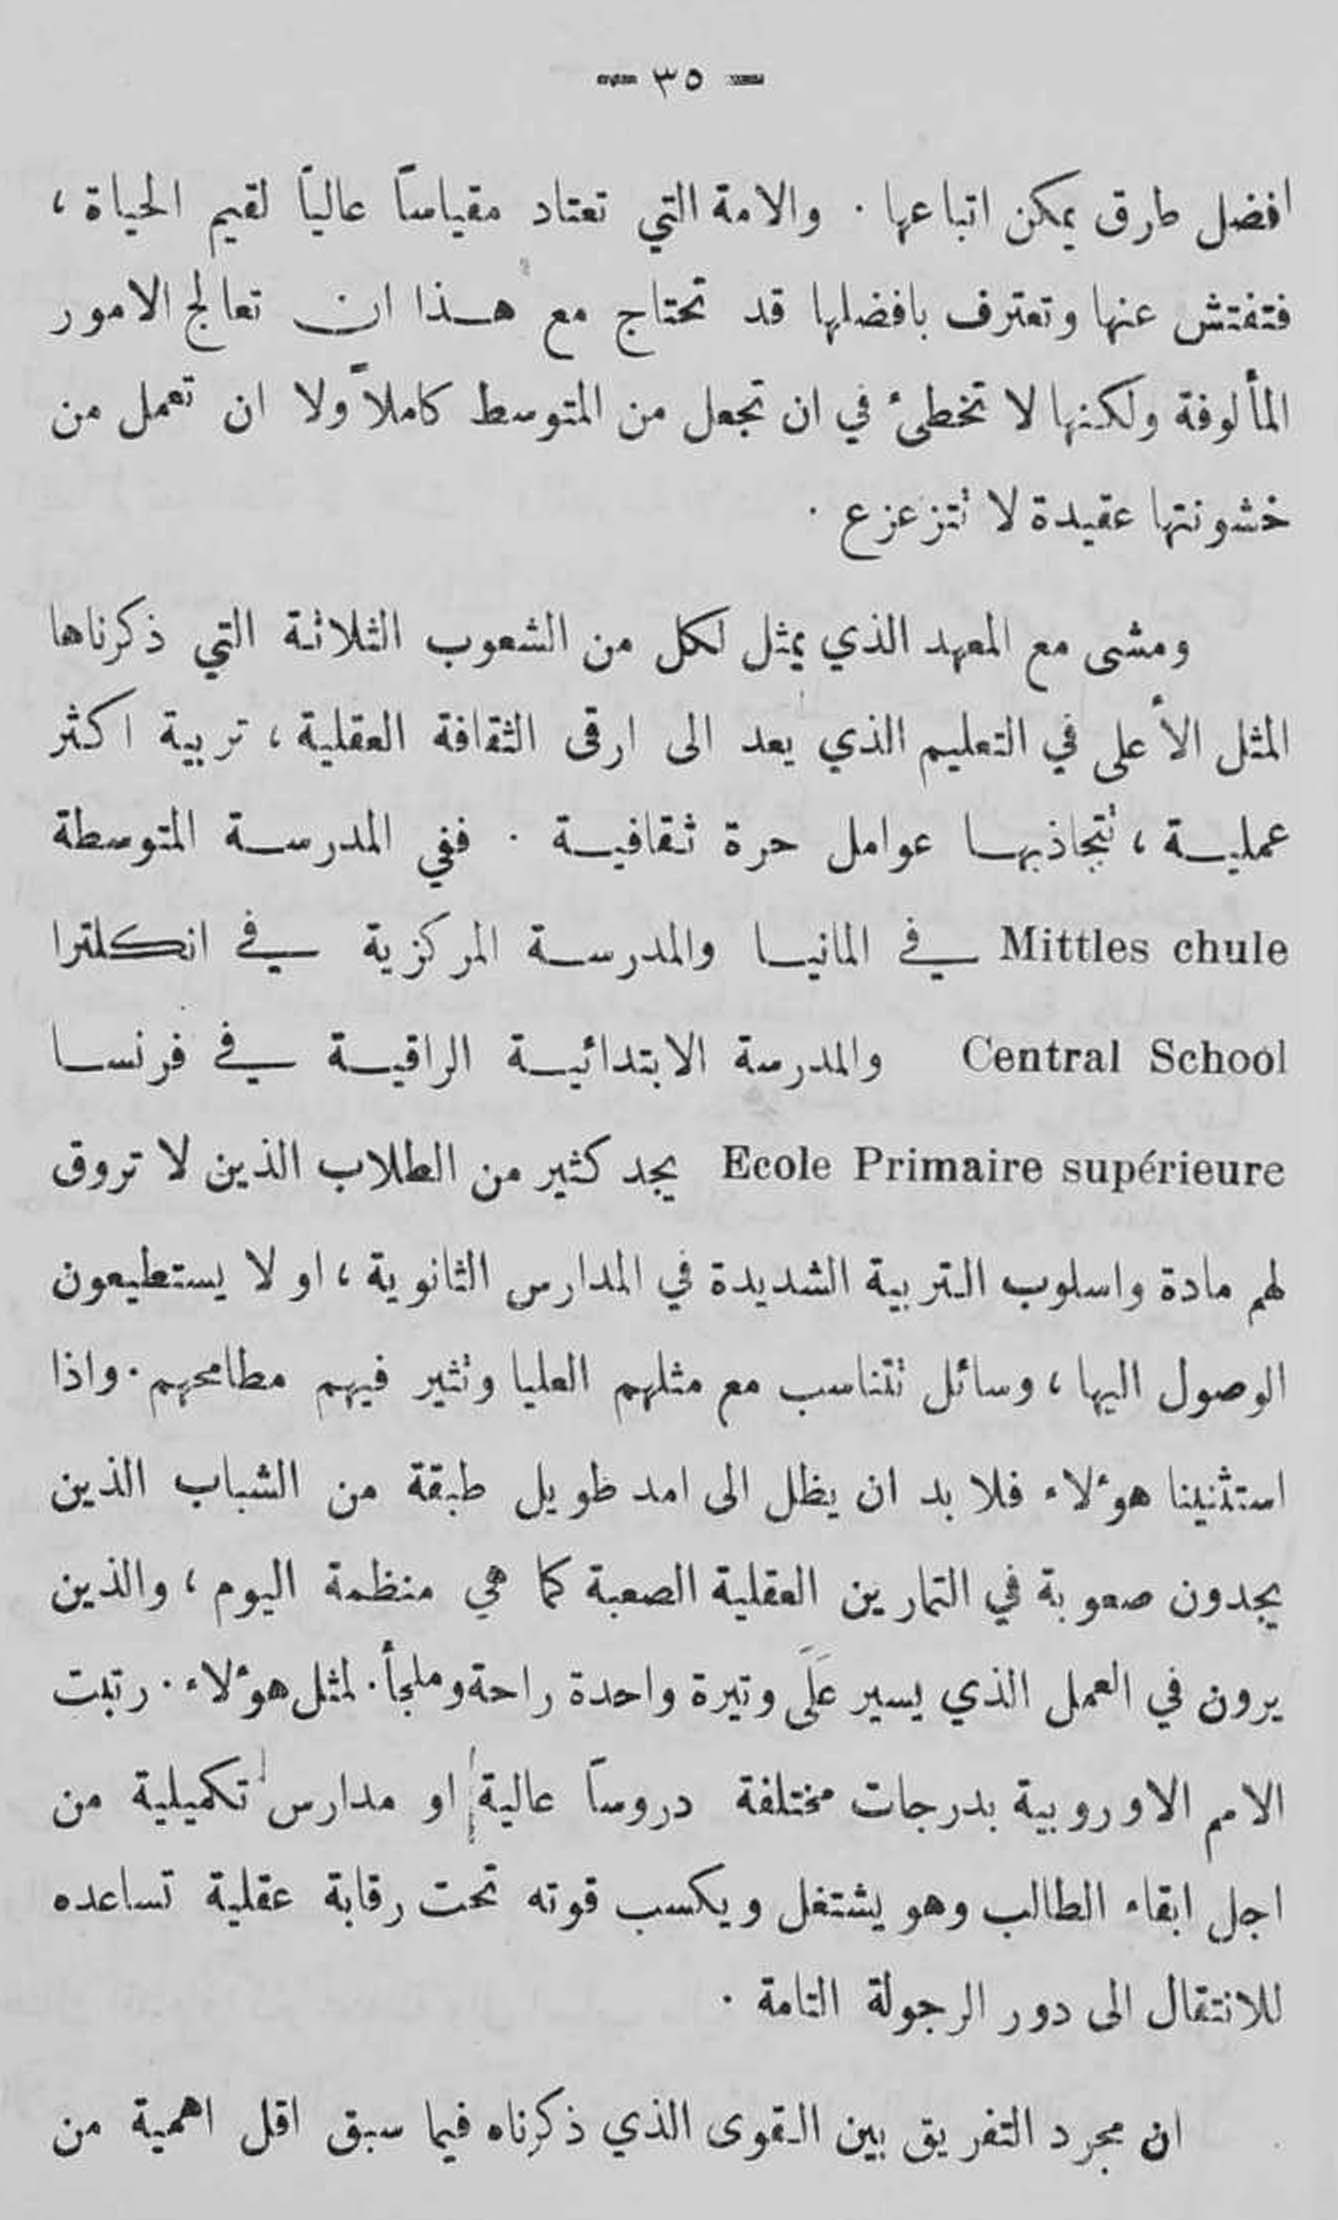 — ٣٥ —
افضل طرق يمكن اتباعها . والامة التي تعتاد مقياساً عالياً لقيم الحياة ،
فتفتش عنها وتعترف بافضلها قد تحتاج مع هذا ان تعالج الامور
المألوفة ولكنها لا تخطئ في ان تجعل من المتوسط كاملاً ولا ان تعمل من
خشونتها عقيدة لا تتزعزع .
ومشى مع المعهد الذي يمثل لكل من الشعوب الثلاثة التي ذكرناها
المثل الأعلى في التعليم الذي يعد الى ارقى الثقافة العقلية ، تربية اكثر
عملية ، تتجاذبها عوامل حرة ثقافية . ففي المدرسة المتوسطة
Mittles chule في المانيا والمدرسة المركزية في انكلترا
Central School والمدرسة الابتدائية الراقية في فرنسا
Ecole Primaire supérieure يجد كثير من الطلاب الذين لا تروق
لهم مادة واسلوب التربية الشديدة في المدارس الثانوية ، او لا يستطيعون
الوصول اليها ، وسائل تتناسب مع مثلهم العليا وتثير فيهم مطامحهم . واذا
استثنينا هؤلاء فلا بد ان يظل الى امد طويل طبقة من الشباب الذين
يجدون صعوبة في التمارين العقلية الصعبة كما هي منظمة اليوم ، والذين
يرون في العمل الذي يسير عَلَى وتيرة واحدة راحة وملجأ . لمثل هؤلاء . رتبت
الامم الاوروبية بدرجات مختلفة دروساً عالية او مدارس تكميلية من
اجل ابقاء الطالب وهو يشتغل ويكسب قوته تحت رقابة عقلية تساعده
للانتقال الى دور الرجولة التامة .
ان مجرد التفريق بين القوى الذي ذكرناه فيما سبق اقل اهمية من